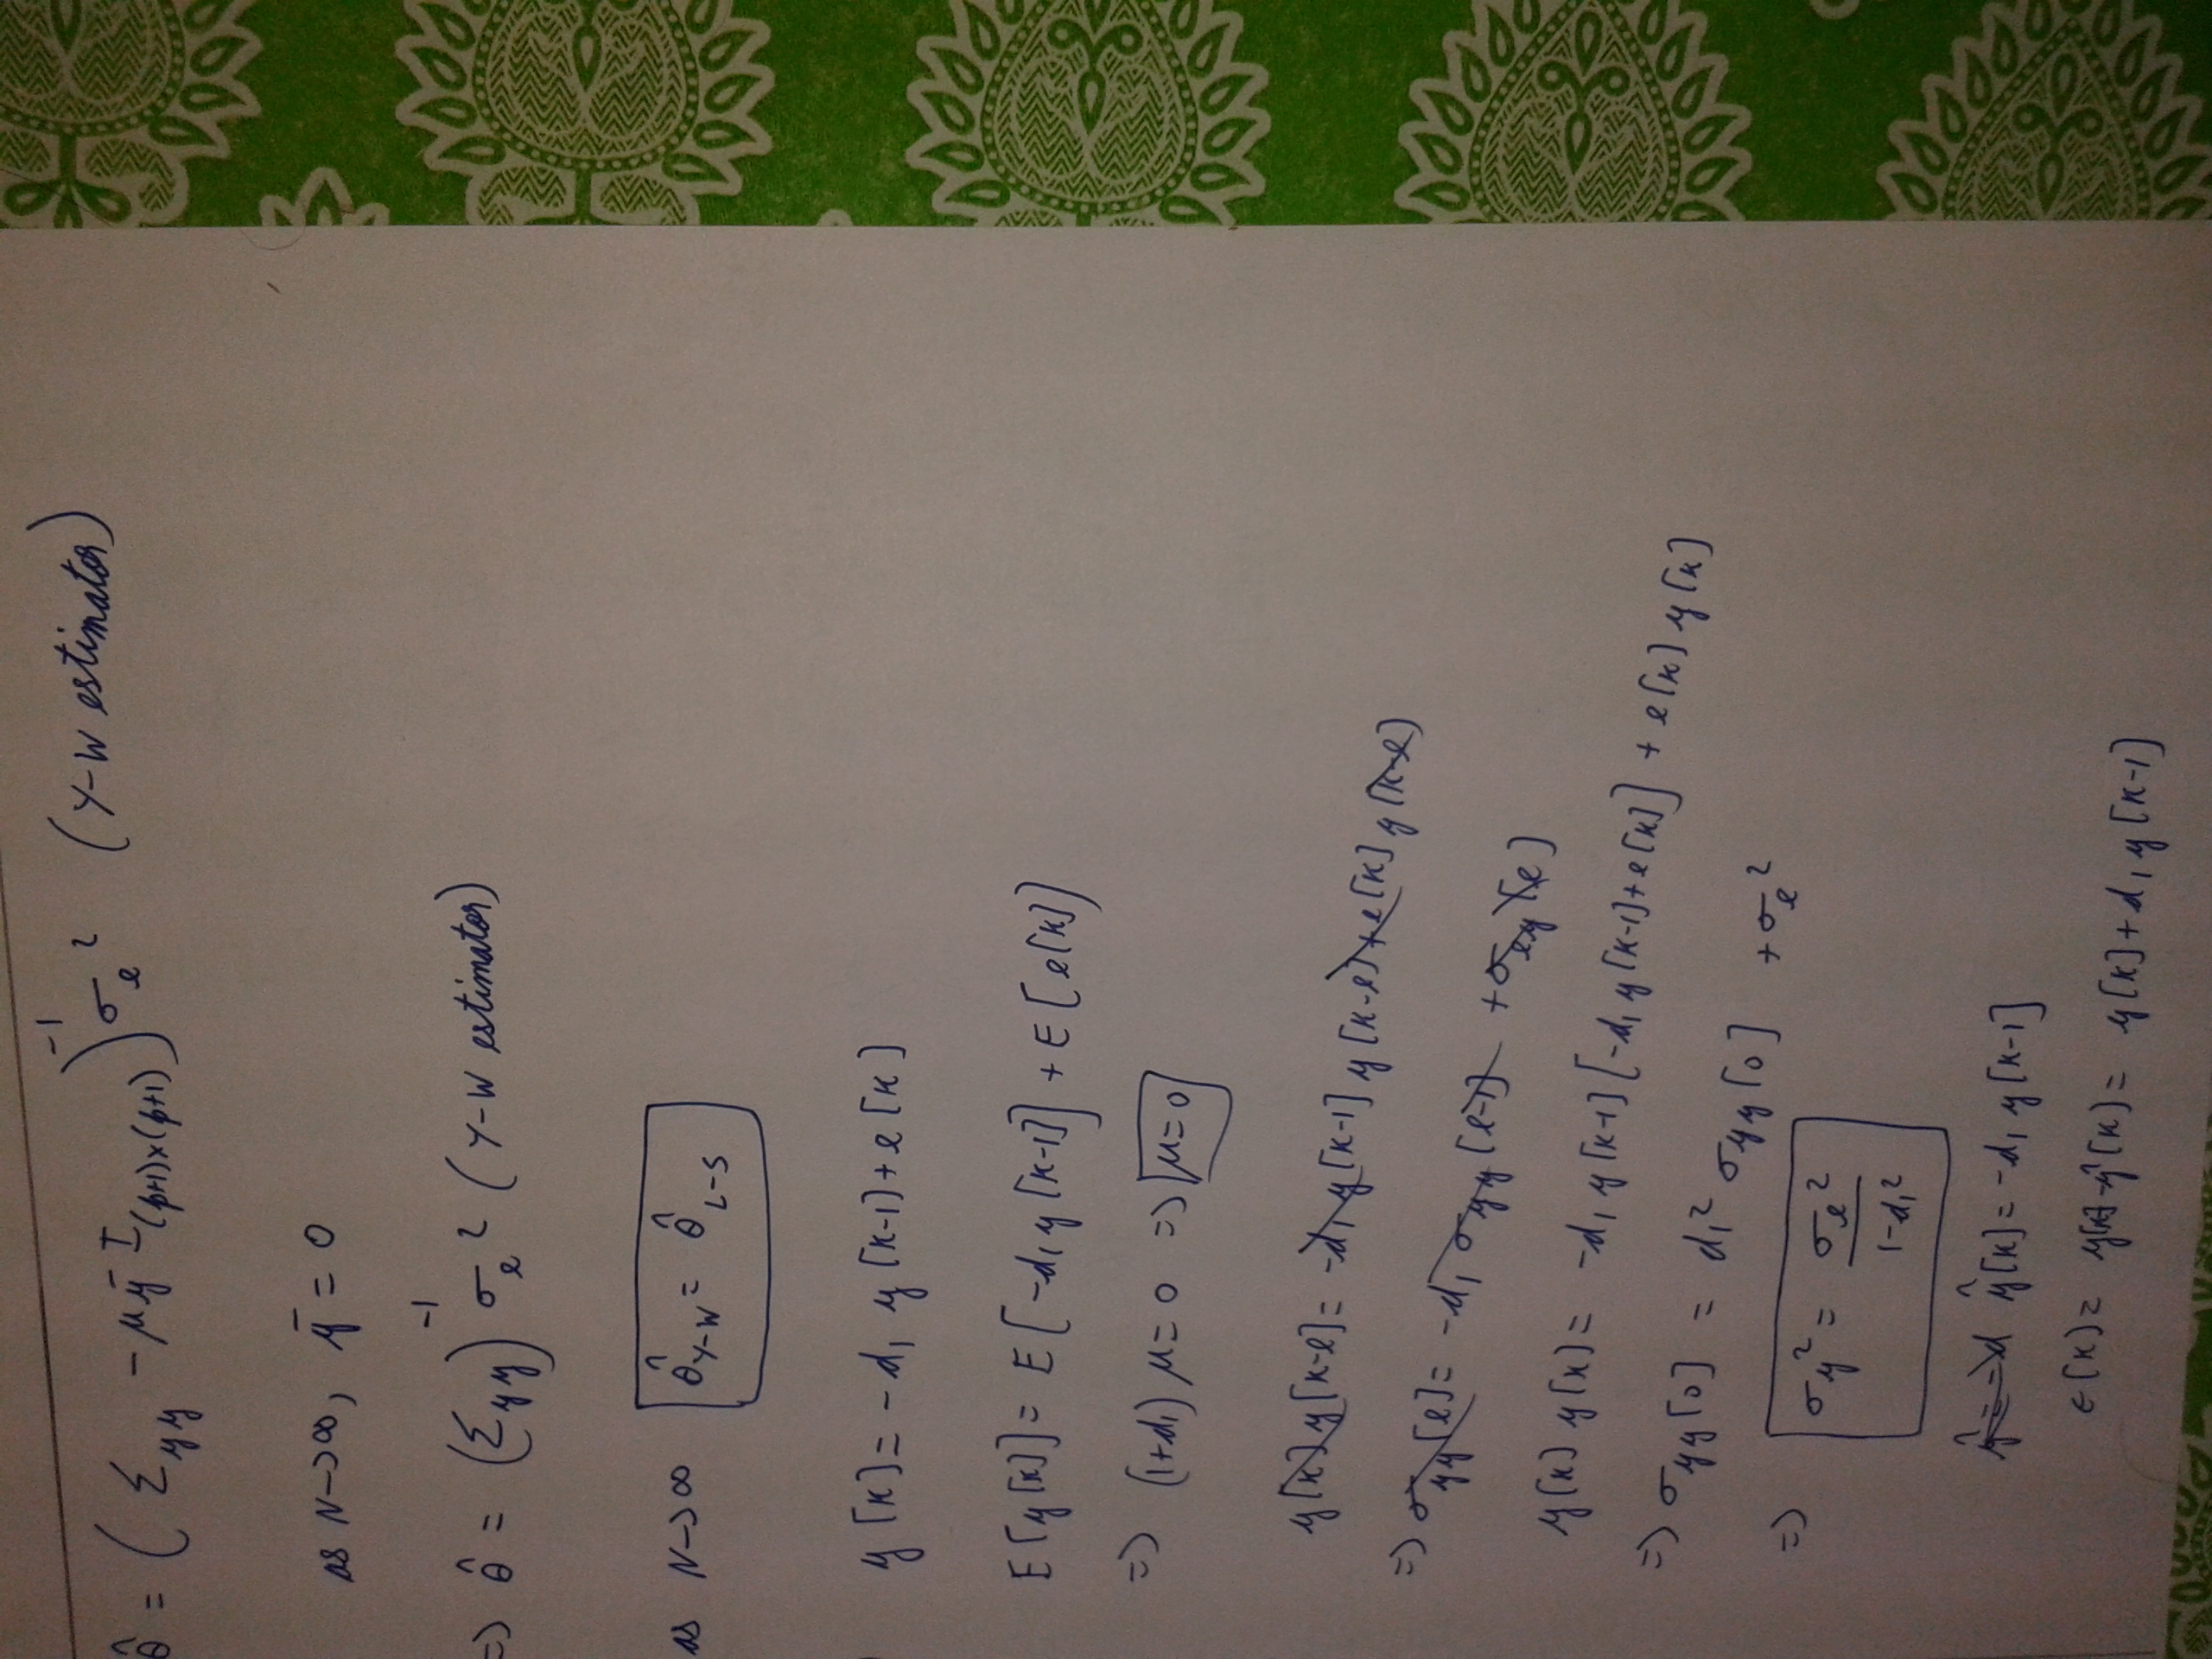 θ̂ = (Σyy − μȳ I(p+1)×(p+1))⁻¹ σe² (Y-W estimator)
as N→∞, ȳ = 0
=) θ̂ = (Σyy)⁻¹ σe² (Y-W estimator)
as N→∞ θ̂Y-W = θ̂L-S
y[k] = −d₁ y[k-1] + e[k]
E[y[k]] = E[−d₁y[k-1]] + E[e[k]]
=) (1+d₁) μ = 0 =) μ = 0
y[k] y[k-l] = −d₁ y[k-1] y[k-l] + e[k] y[k-l]
=) σyy[l] = −d₁ σyy[l-1] + σey[l]
y[k] y[k] = −d₁ y[k-1] [−d₁ y[k-1] + e[k]] + e[k] y[k]
=) σyy[0] = d₁² σyy[0] + σe²
=) σy² = σe² / 1−d₁²
ŷ = −d ŷ[k] = −d₁ y[k-1]
ε[k] = y[k] − ŷ[k] = y[k] + d₁ y[k-1]